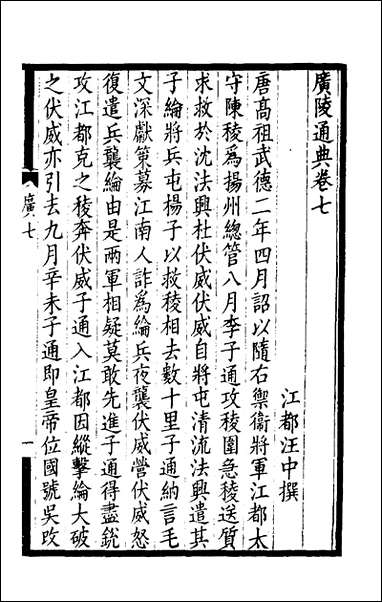 廣陵通典卷七
江都汪中撰
唐高祖武德二年四月詔以隋右禦衞將軍江都太
守陳稜爲揚州總管八月李子通攻稜圍急稜送質
求救於沈法興杜伏威伏威自將屯清流法興遣其
子綸將兵屯楊子以救稜相去數十里子通納言毛
文深獻策募江南人詐爲綸兵夜襲伏威營伏威怒
復遣兵襲綸由是兩軍相疑莫敢先進子通得盡銳
攻江都克之稜奔伏威子通入江都因縱擊綸大破
之伏威亦引去九月辛未子通即皇帝位國號吳改
廣七
一